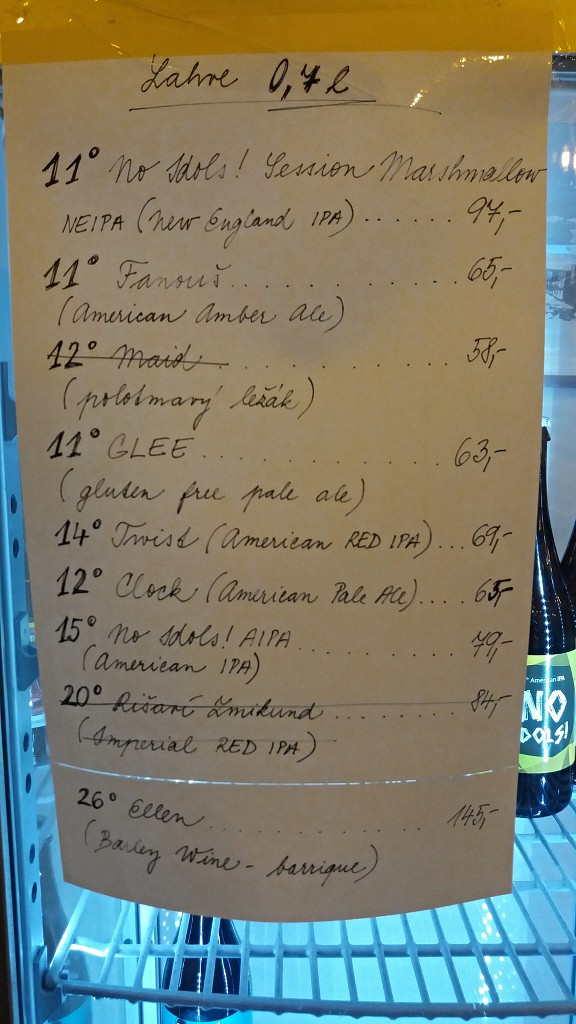 Lahve 0,7 l
11° No Idols! Session Marshmallow
NEIPA (New England IPA)...... 97,-
11° Fanouš.............. 65,-
(American Amber Ale)
12° Maid............. 58,-
(polotmavý ležák)
11° GLEE............. 63,-
(gluten free pale ale)
14° Twist (American RED IPA)... 69,-
12° Clock (American Pale Ale).... 65,-
15° No Idols! AIPA.......... 79,-
(American IPA)
20° Rišaví Zmikund........ 84,-
(Imperial RED IPA)
26° Ellen............. 145,-
(Barley Wine - barrique)
American IPA
NO
IDOLS!